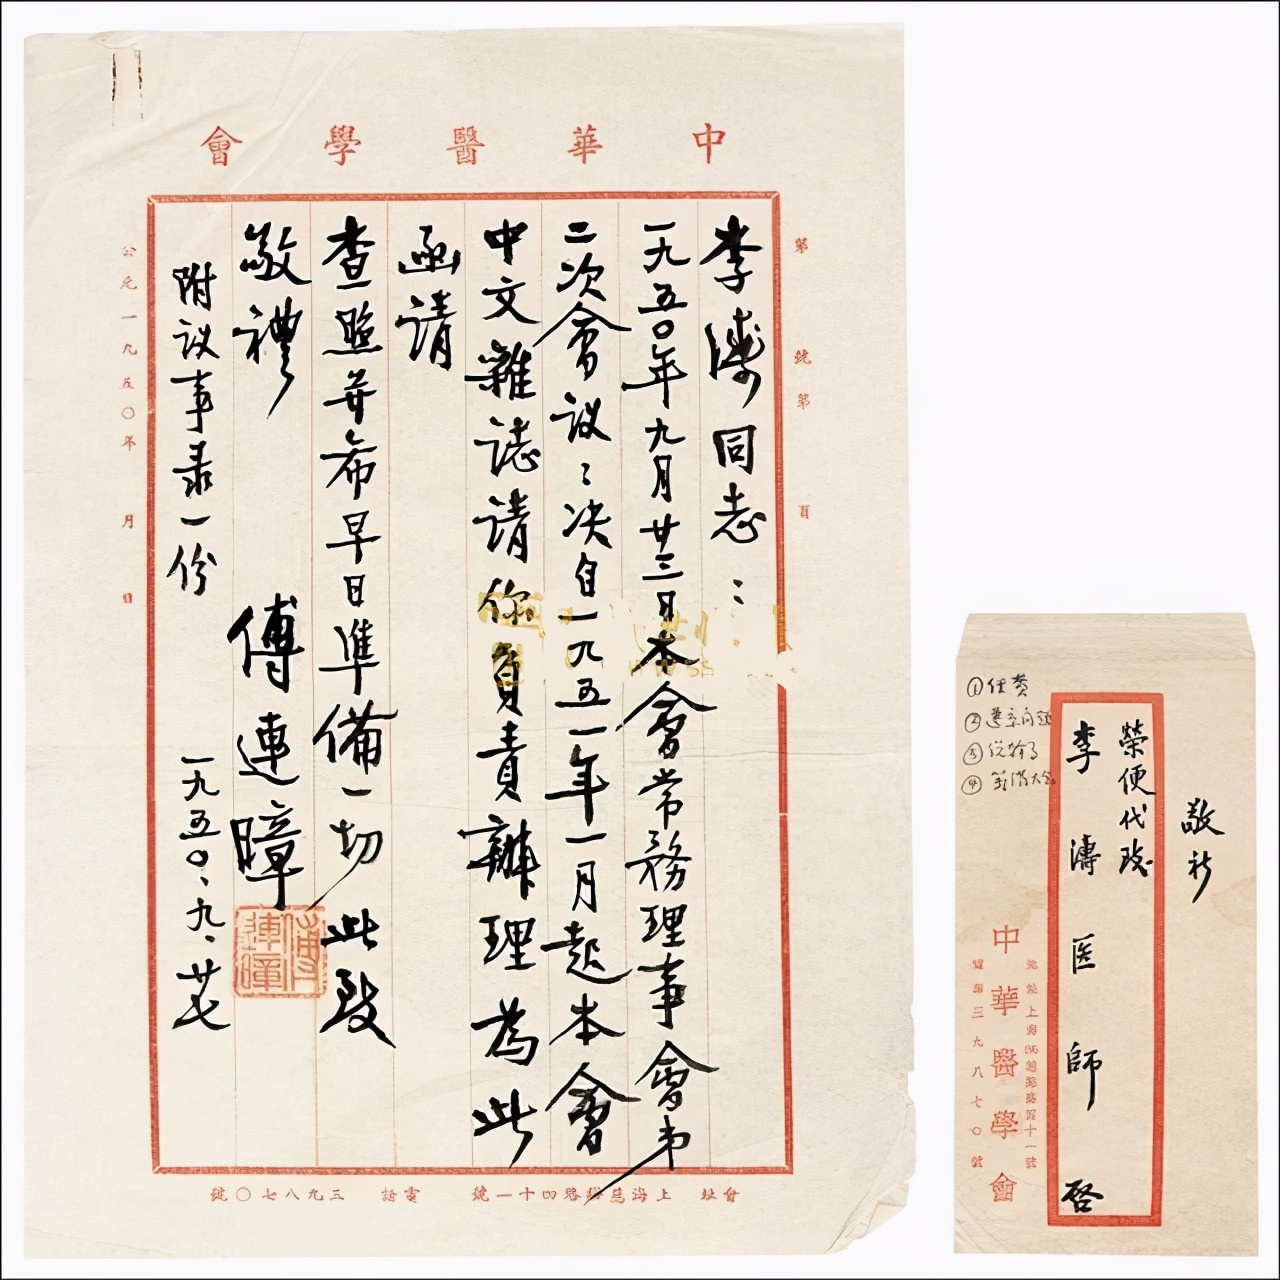 中華醫學會
第　號第　頁
李濤同志：
一九五〇年九月廿三日本會常務理事會弟
二次會议〻决自一九五一年一月起本會
中文雜誌请你負責辦理為此
函请
查照并希早日準備一切此致
敬禮
傅連暲
傅連暲
附议事录一份
一九五〇、九、廿七
公元一九五〇年　月　日
會址 上海慈谿路四十一號 電話 三九八七〇號
敬祈
榮便代致
李濤医師啓
中華醫學會
電話三九八七〇號
①任
②
③
④